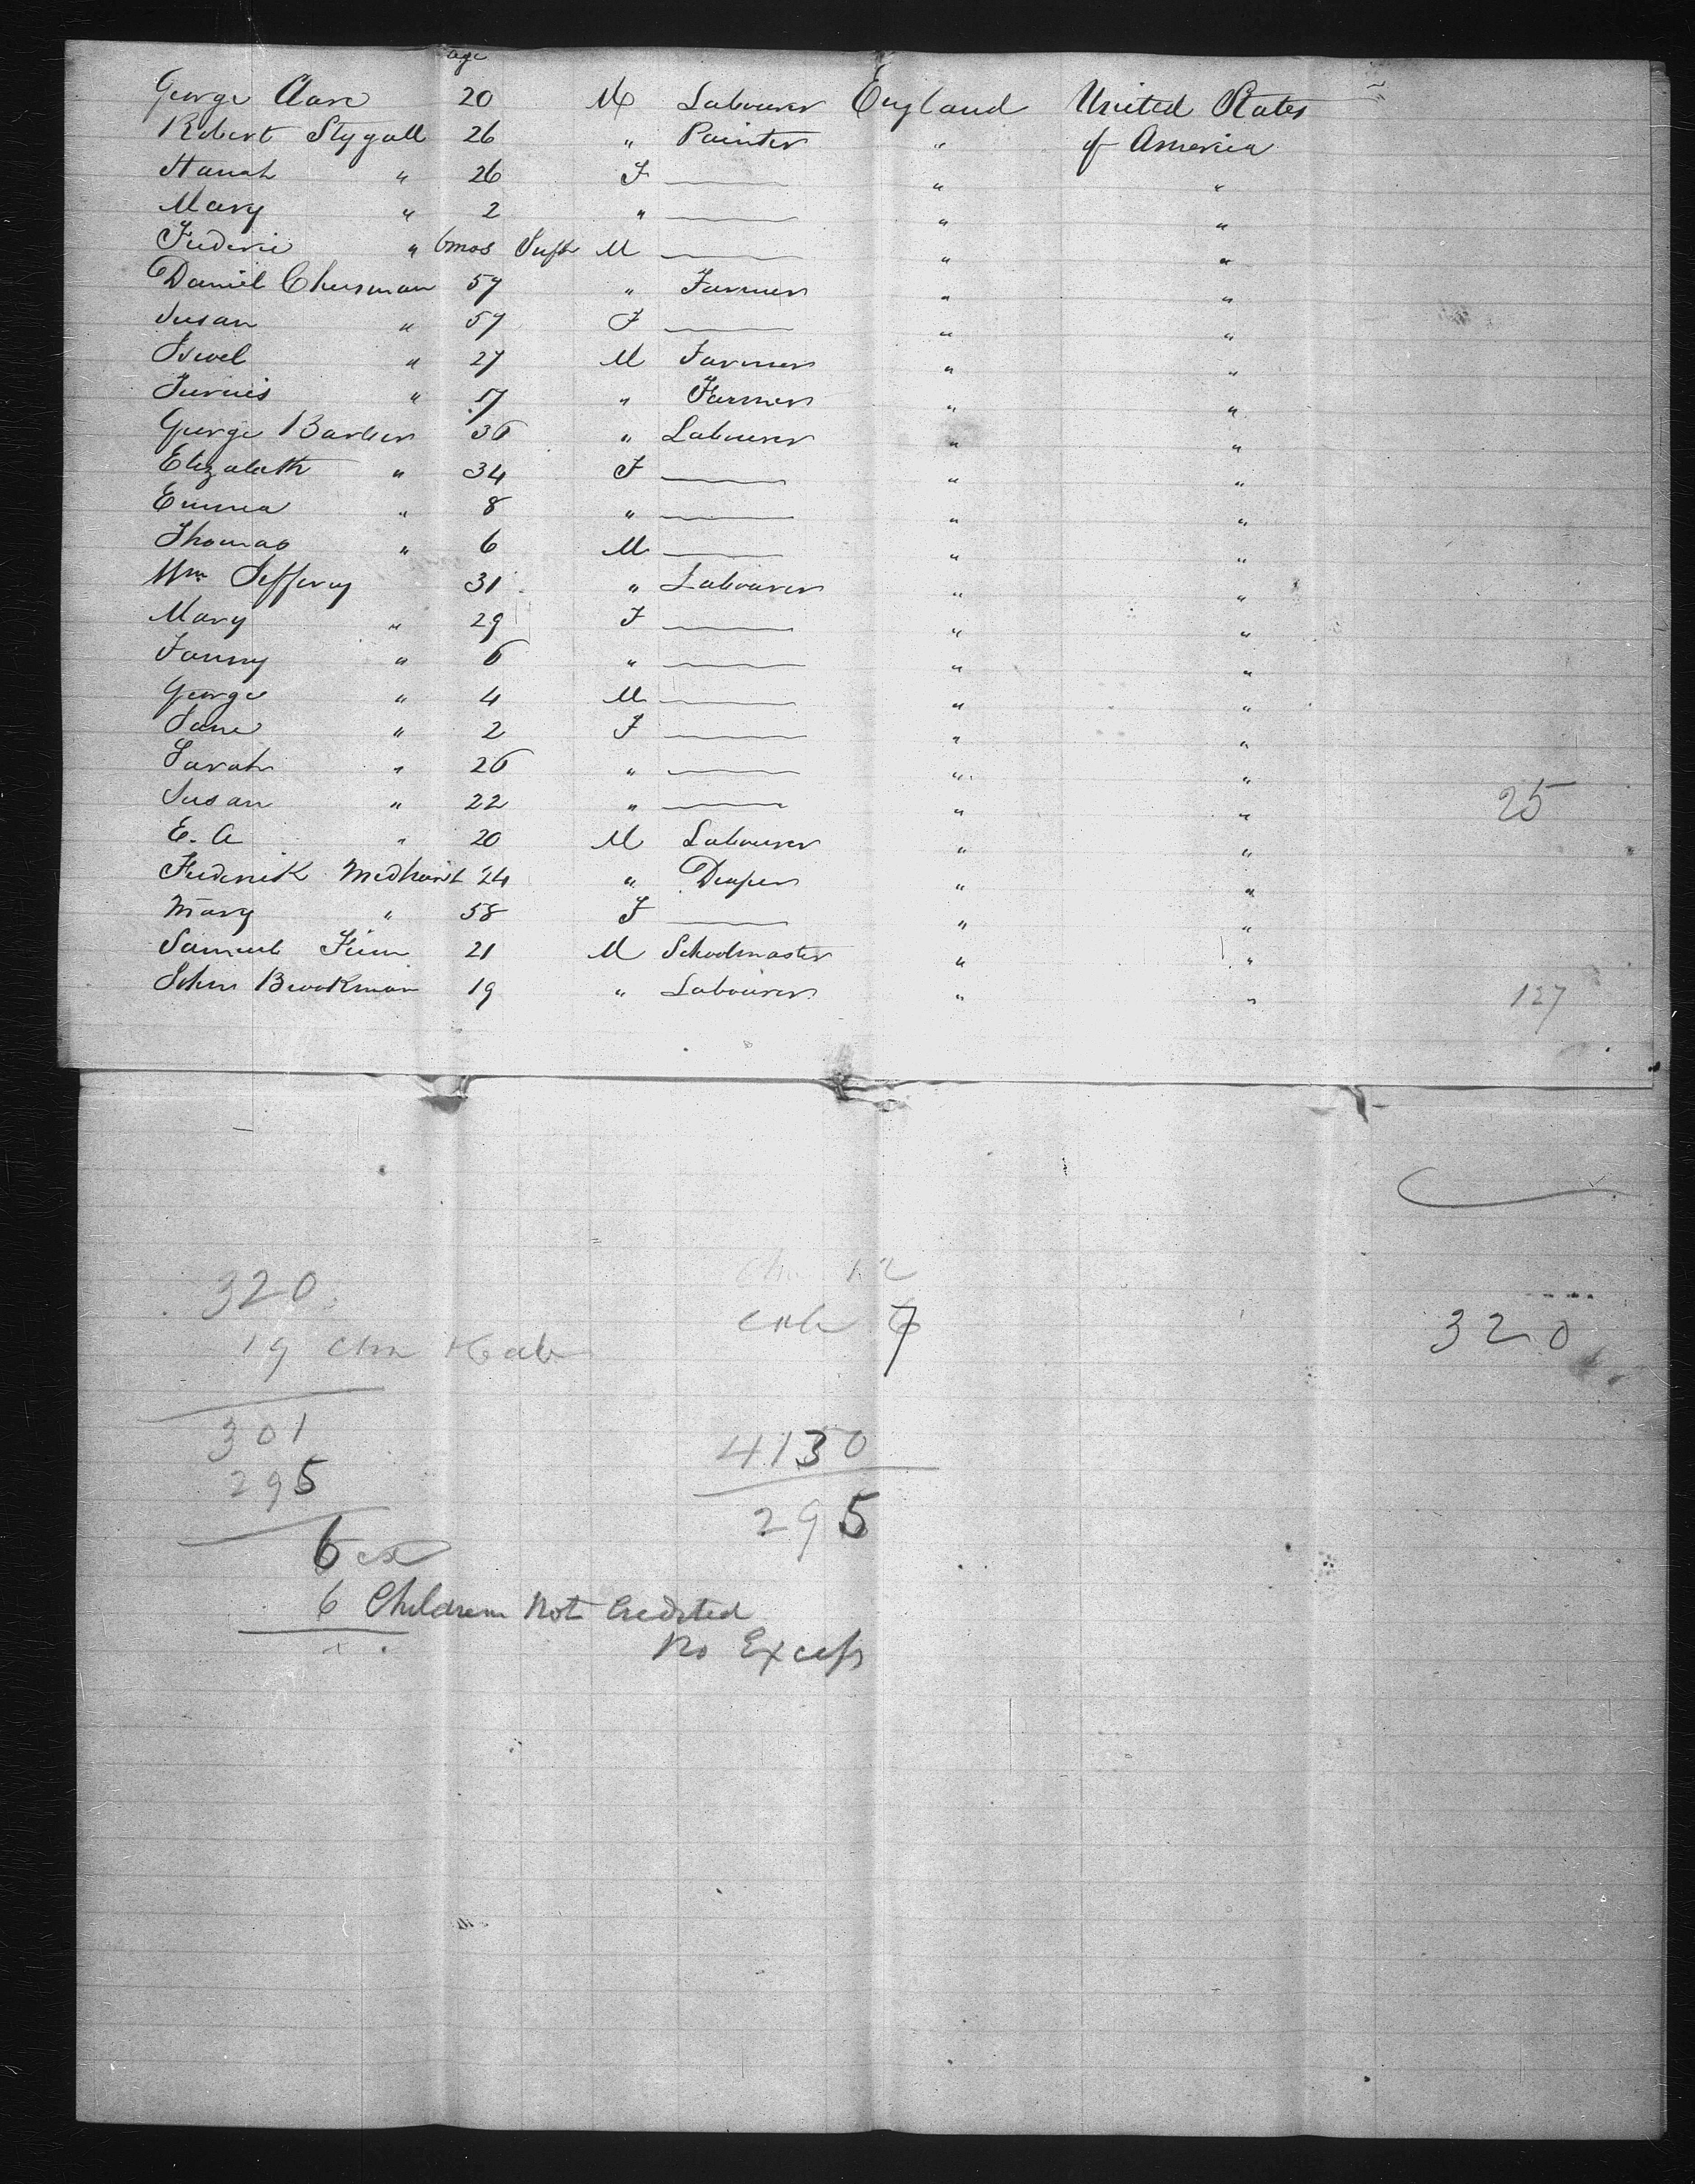 age
George Clare 20 M Labourer England United States
Robert Stygall 26 " Painter " of America
Hanah " 26 F " "
Mary " 2 " " "
Frederic " 6mos Inft M " "
Daniel Cheesman 57 " Farmer " "
Susan " 57 F " "
" 27 M Farmer " "
" 17 " Farmer " "
George Barber 36 " Labourer " "
Elizabeth " 34 F " "
Emma " 8 " " "
Thomas " 6 M " "
Wm Jeffery 31 " Labourer " "
Mary " 29 F " "
Fanny " 6 " " "
George " 4 M " "
Jane " 2 F " "
Sarah " 26 " " "
Susan " 22 " " " 25
E. A " 20 M Labourer " "
Frederick Medhurst 24 " Draper " "
Mary " 58 F " "
Samuel 21 M Schoolmaster " "
John Brookman 19 " Labourer " " 127
320 12
19 Chn 7 320
301
295 4130
6 ex 295
6 Children Not Credited
No Excess